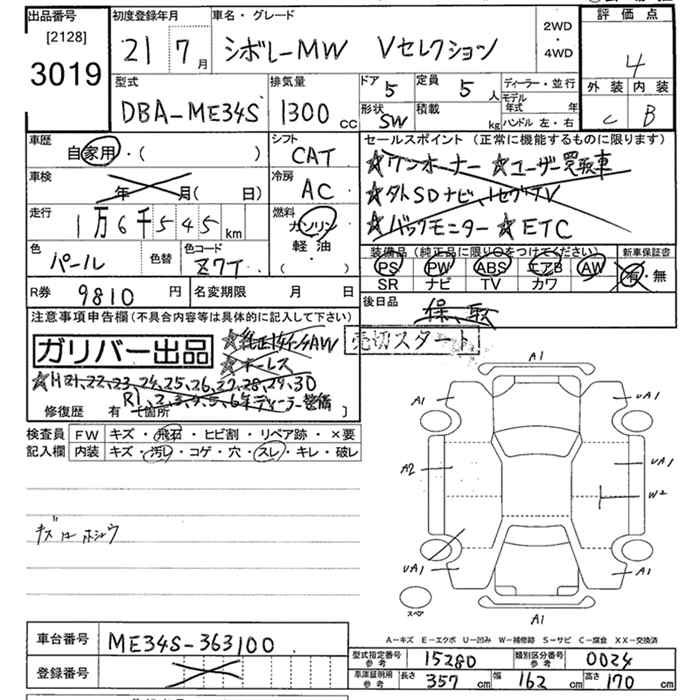 出品番号
[2128]
3019
初度登録年月
21 7 月
車名・グレード
シボレーMW Vセレクション
2WD
・
4WD
評価点
4
外装 内装
C B
型式
DBA-ME34S
排気量
1300 cc
ドア 5
定員 5 人
形状 SW
積載 kg
ディーラー・並行
モデル年式 年
ハンドル 左・右
車歴
自家用・( )
シフト
CAT
車検
年 月( 日)
冷房
AC
走行
1万6千545 km
燃料
ガソリン
軽油
( )
色
パール
色替
色コード
Z7T
R券 9810 円
名変期限 月 日
セールスポイント (正常に機能するものに限ります)
★ワンオーナー ★ユーザー買取車
★外SDナビ、1セグTV
★バックモニター ★ETC
装備品 (純正品に限り○をつけてください)
新車保証書
PS PW ABS エアB AW
SR ナビ TV カワ
有・無
後日品
保、取
注意事項申告欄(不具合内容等は具体的に記入して下さい)
ガリバー出品
売切スタート
★純正14インチAW
★キーレス
★H21,22,23,24,25,26,27,28,29,30
R1,2,3,4,5,6年ディーラー整備
修復歴 有 箇所 ]
検査員
記入欄
FW キズ・飛石・ヒビ割・リペア跡・×要
内装 キズ・汚レ・コゲ・穴・スレ・キレ・破レ
キズ有ホシュウ
A1
A1
UA1
A2
UA1
W2
UA1
A1
A1
スペア
A-キズ E-エクボ U-凹み W-補修跡 S-サビ C-腐食 XX-交換済
車台番号
ME34S-363100
登録番号
型式指定番号
参考
15280
類別区分番号
参考
0024
車庫証明用
参考
長さ 357 cm
幅 162 cm
高さ 170 cm